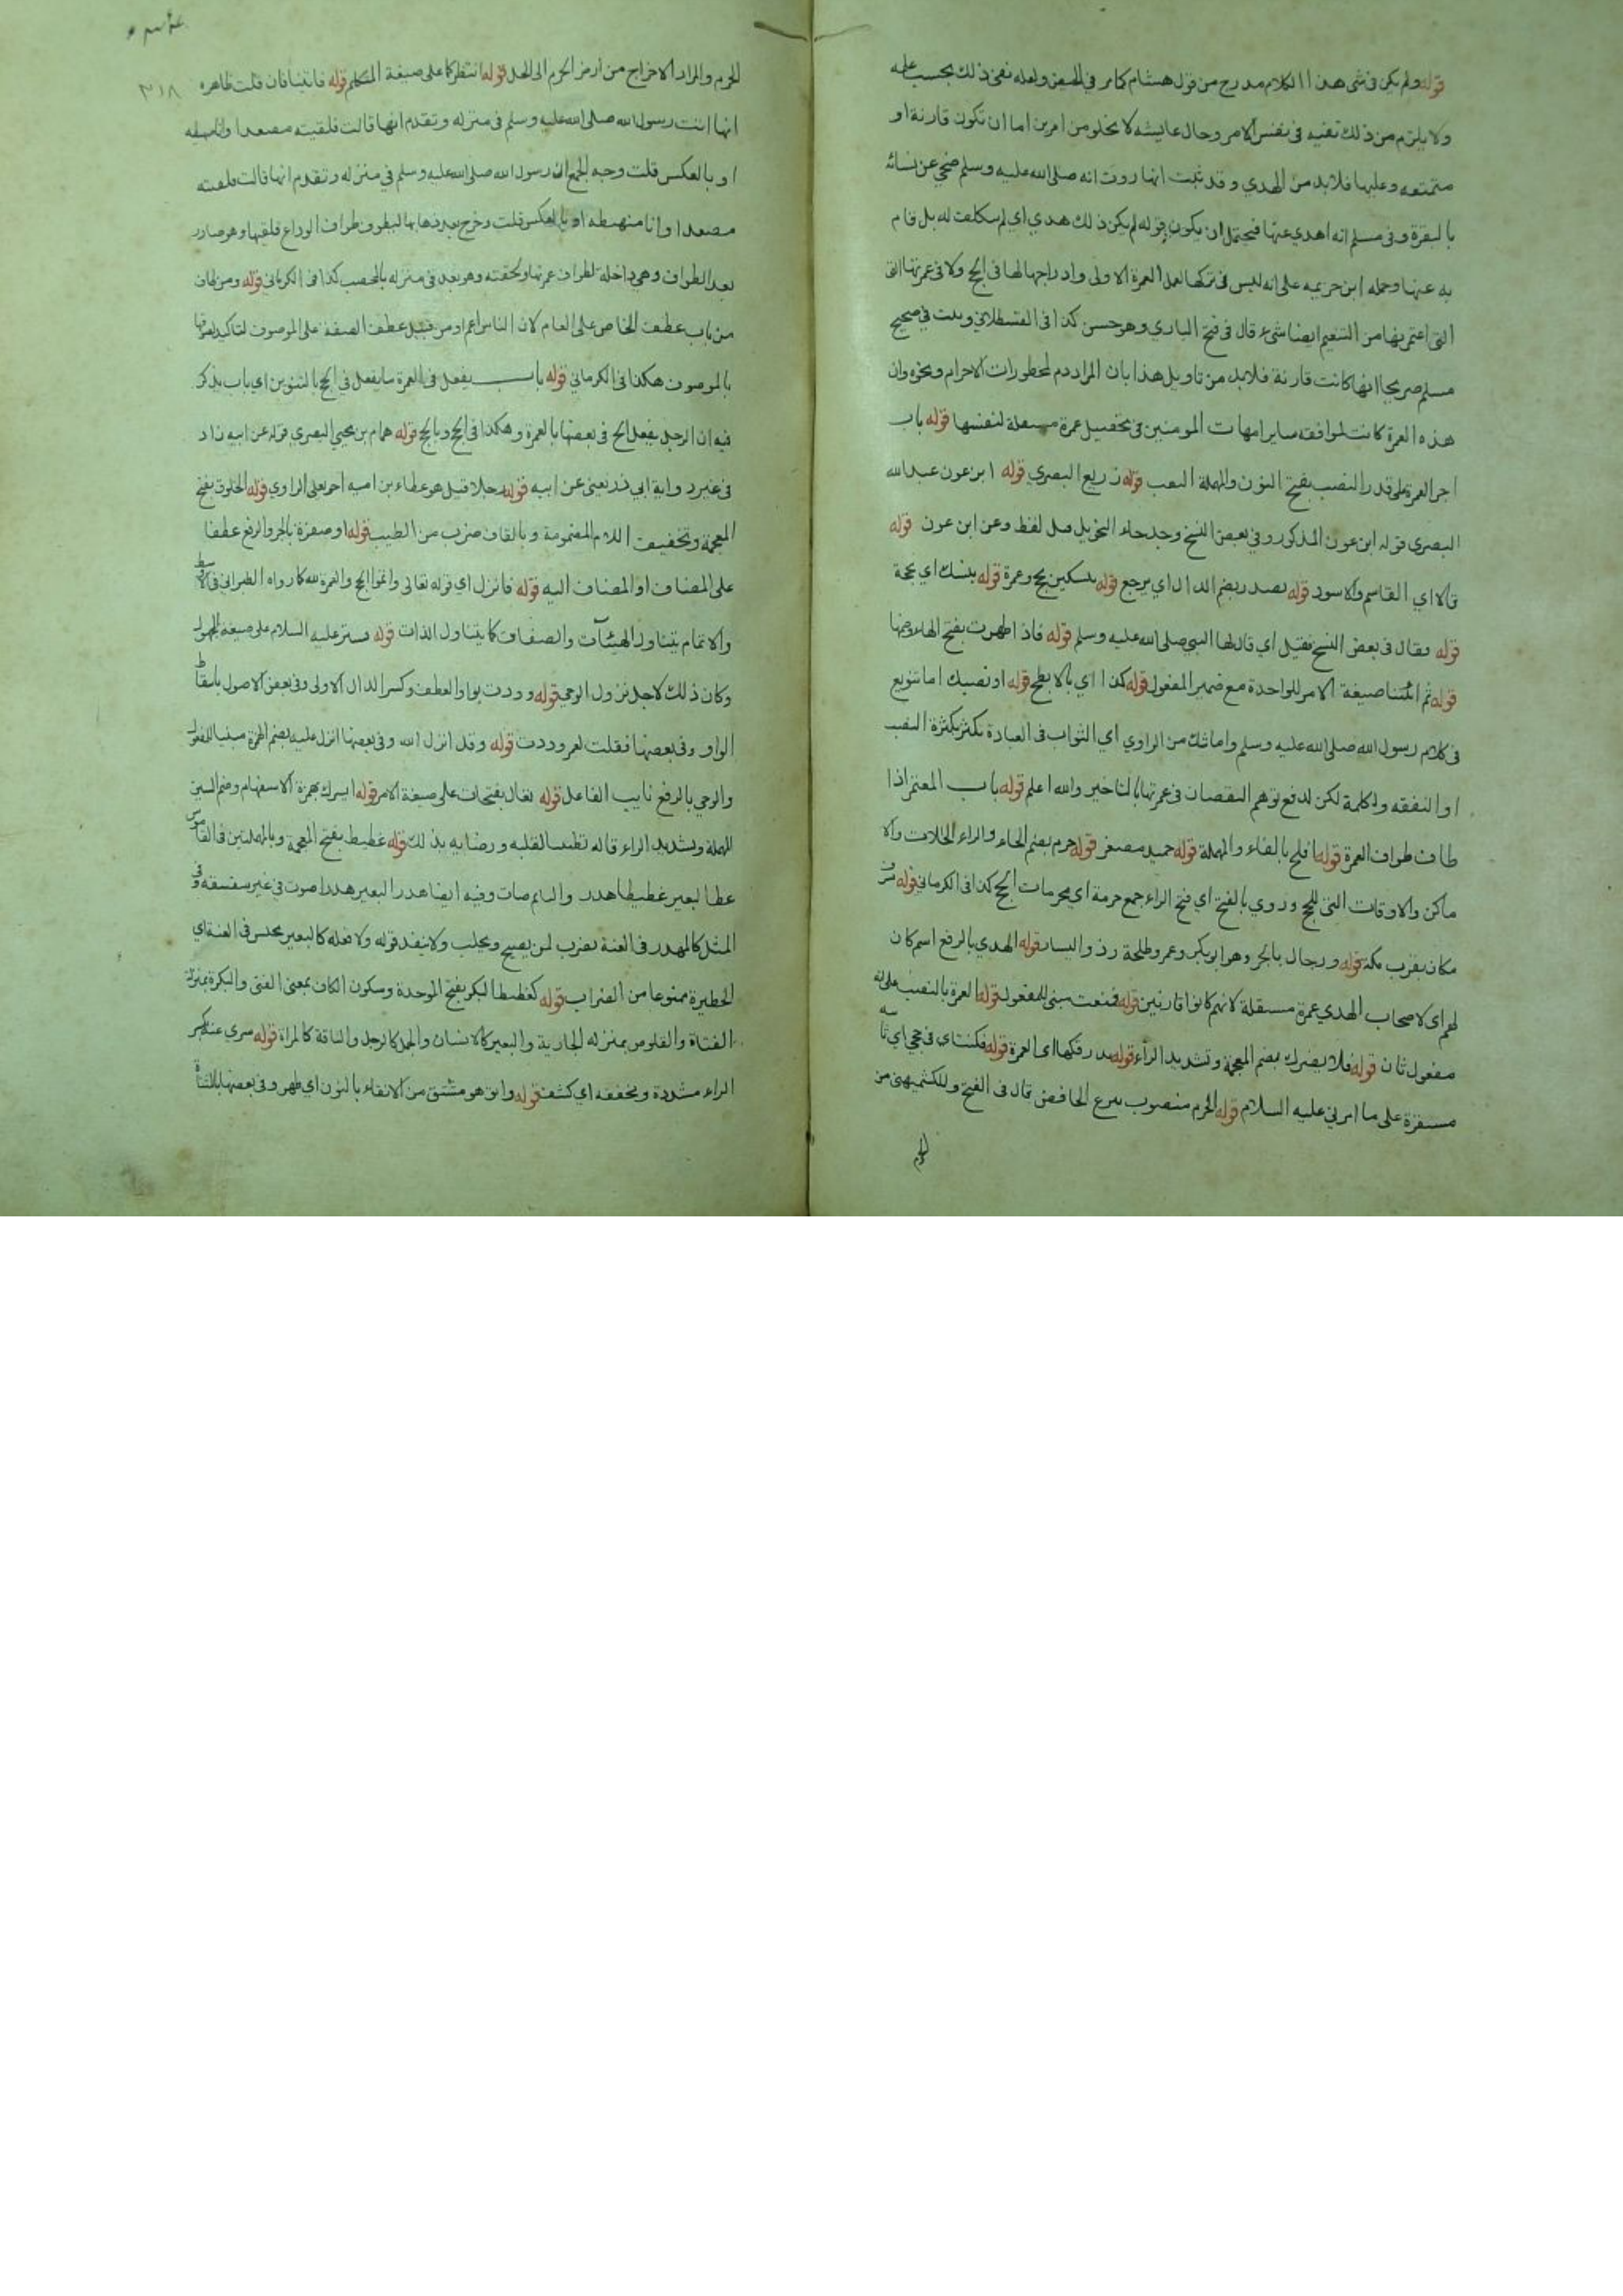 قوله ولم يكن في شي هذا الكلام مدرج من قول هشام كما مر في الحيض ولعله نفى ذلك بحسب علمه
ولا يلزم من ذلك نفيه في نفس الامر وحال عايشه لا يخلو من امرين اما ان تكون قارنة او
متمتعه وعليها فلا بد من الهدي وقد ثبت انها روت انه صلى الله عليه وسلم ضحي عن نسائه
بالبقرة وفي مسلم انه اهدي عنها فيحتمل ان يكون قوله لم يكن ذلك هدي اي لم يتكلف له بل قام
به عنها وحمله ابن خزيمه على انه ليس في تركها لعمل العمرة الاولى وادراجها لها في الحج ولا في عمرتها التي
التي اعتمرتها من التنعيم ايضا شيء قال في فتح الباري وهو حسن كذا في القسطلاني وثبت في صحيح
مسلم صريحا انها كانت قارنة فلا بد من تاويل هذا بان المراد دم لمحظورات الاحرام ونحوه وان
هذه العمرة كانت لموافقه ساير امهات المومنين في تحصيل عمرة مستقلة لنفسها قوله باب
اجر العمرة على قدر النصب بفتح النون والمهملة التعب قوله زريع البصري قوله ابن عون عبد الله
البصري قوله ابن عون المذكور وفي بعض النسخ وجد حاء التحويل قبل لفظ وعن ابن عون قوله
قالا اي القاسم والاسود قوله يصدر بضم الدال اي يرجع قوله بنسكين بحج وعمرة قوله بنسك اي بحجة
قوله وقال في بعض النسخ فقيل اي قال لها النبي صلى الله عليه وسلم قوله فاذا طهرت بفتح الهاء وضمها
قوله ثم ائتنا صيغة الامر للواحدة مع ضمير المفعول قوله كذا اي بالابطح قوله او نصبك اما تنويع
في كلام رسول الله صلى الله عليه وسلم واما شك من الراوي اي الثواب في العبادة يكثر بكثرة النصب
او النفقه وكلمة لكن لدفع توهم النقصان في عمرتها بالتاخير والله اعلم قوله باب المعتمر اذا
طاف طواف العمرة قوله افلح بالفاء والمهملة قوله حميد مصغر قوله حرم بضم الحاء والراء الحالات والا
ماكن والاوقات التي للحج وروي بالفتح اي فتح الراء جمع حرمة اي محرمات الحج كذا في الكرماني قوله سرف
مكان بقرب مكة قوله ورجال بالجر وهو ابو بكر وعمر وطلحة قوله الهدي بالرفع اسم كان
لهم اي لاصحاب الهدي عمرة مستقلة لانهم كانوا قارنين قوله فمنعت مبني للمفعول قوله العمرة بالنصب على انه
مفعول ثان قوله فلا يضرك بضم المعجمة وتشديد الراء قوله يرزقكها اي العمرة قوله فكنت اي في حجي اي ثابته
مستقرة على ما امرني عليه السلام قوله الحرم منصوب بنزع الخافض قال في الفتح وللكشميهني من
الحرم
٣١٨
الحرم والمراد الاخراج من ارض الحرم الى الحل قوله انتظركما على صيغة المتكلم قوله فاتينا فان قلت ظاهره
انها اتت رسول الله صلى الله عليه وسلم في منزله وتقدم انها قالت فلقيته مصعدا وانا منهبطه
او بالعكس قلت وجه الجمع ان رسول الله صلى الله عليه وسلم في منزله وتقدم انها قالت فلقيته
مصعدا وانا منهبطه او بالعكس قلت وخرج بعد ذهابها ليطوف طواف الوداع فلقيها وهو صادر
بعد الطواف وهي داخلة لطواف عمرتها ولحقته وهو بعد في منزله بالمحصب كذا في الكرماني قوله ومن طاف
من باب عطف الخاص على العام لان الناس اعم او من قبيل عطف الصفة على الموصوف لتاكيد لصوقها
بالموصوف هكذا في الكرماني قوله باب يفعل في العمرة ما يفعل في الحج بالتنوين اي باب يذكر
فيه ان الرجل يفعل الحج في بعضها بالعمرة وهكذا في الحج وبالحج قوله همام بن يحيى البصري قوله عن ابيه زاد
في غير رواية ابي ذر يعني عن ابيه قوله رجلا قيل هو عطاء بن امية اخو يعلى الراوي قوله الخلوق بفتح
المعجمة وتخفيف اللام المضمومة وبالقاف ضرب من الطيب قوله او صفرة بالجر والرفع عطفا
على المضاف او المضاف اليه قوله فانزل اي قوله تعالى واتموا الحج والعمرة لله كما رواه الطبراني في الاوسط
والاتمام يتناول الهيئآت والصفات كما يتناول الذات قوله فستر عليه السلام على صيغة المجهول
وكان ذلك لاجل نزول الوحي قوله ووددت بواو العطف وكسر الدال الاولى وفي بعض الاصول باسقاط
الواو وفي بعضها فقلت لعمر وددت قوله وقد انزل الله وفي بعضها انزل عليه بضم الهمزة مبنيا للمفعول
والوحي بالرفع نايب الفاعل قوله تعال بفتحات على صيغة الامر قوله ايسرك بهمزة الاستفهام وضم السين
المهملة وتشديد الراء قاله تطييبا لقلبه ورضايه بذلك قوله غطيط بفتح المعجمة وبالمهملتين في القاموس
غطا البعير غطيطا هدر والنايم صات وفيه ايضا هدر البعير هدرا صوت في غير شقشقه وفي
المثل كالمهدر في العنة يضرب لمن يصيح ويجلب ولا ينفذ قوله ولا فعله كالبعير يحبس في العنة اي
الحظيرة ممنوعا من الضراب قوله كغطيط البكر بفتح الموحدة وسكون الكاف بمعنى الفتى والبكرة بمنزلة
الفتاة والقلوص بمنزله الجارية والبعير كالانسان والجمل كالرجل والناقة كالمراة قوله سري عنه بكسر
الراء مشددة ومخففه اي كشف قوله وانق هو مشتق من الانقاء بالنون اي طهر وفي بعضها بالمثناة